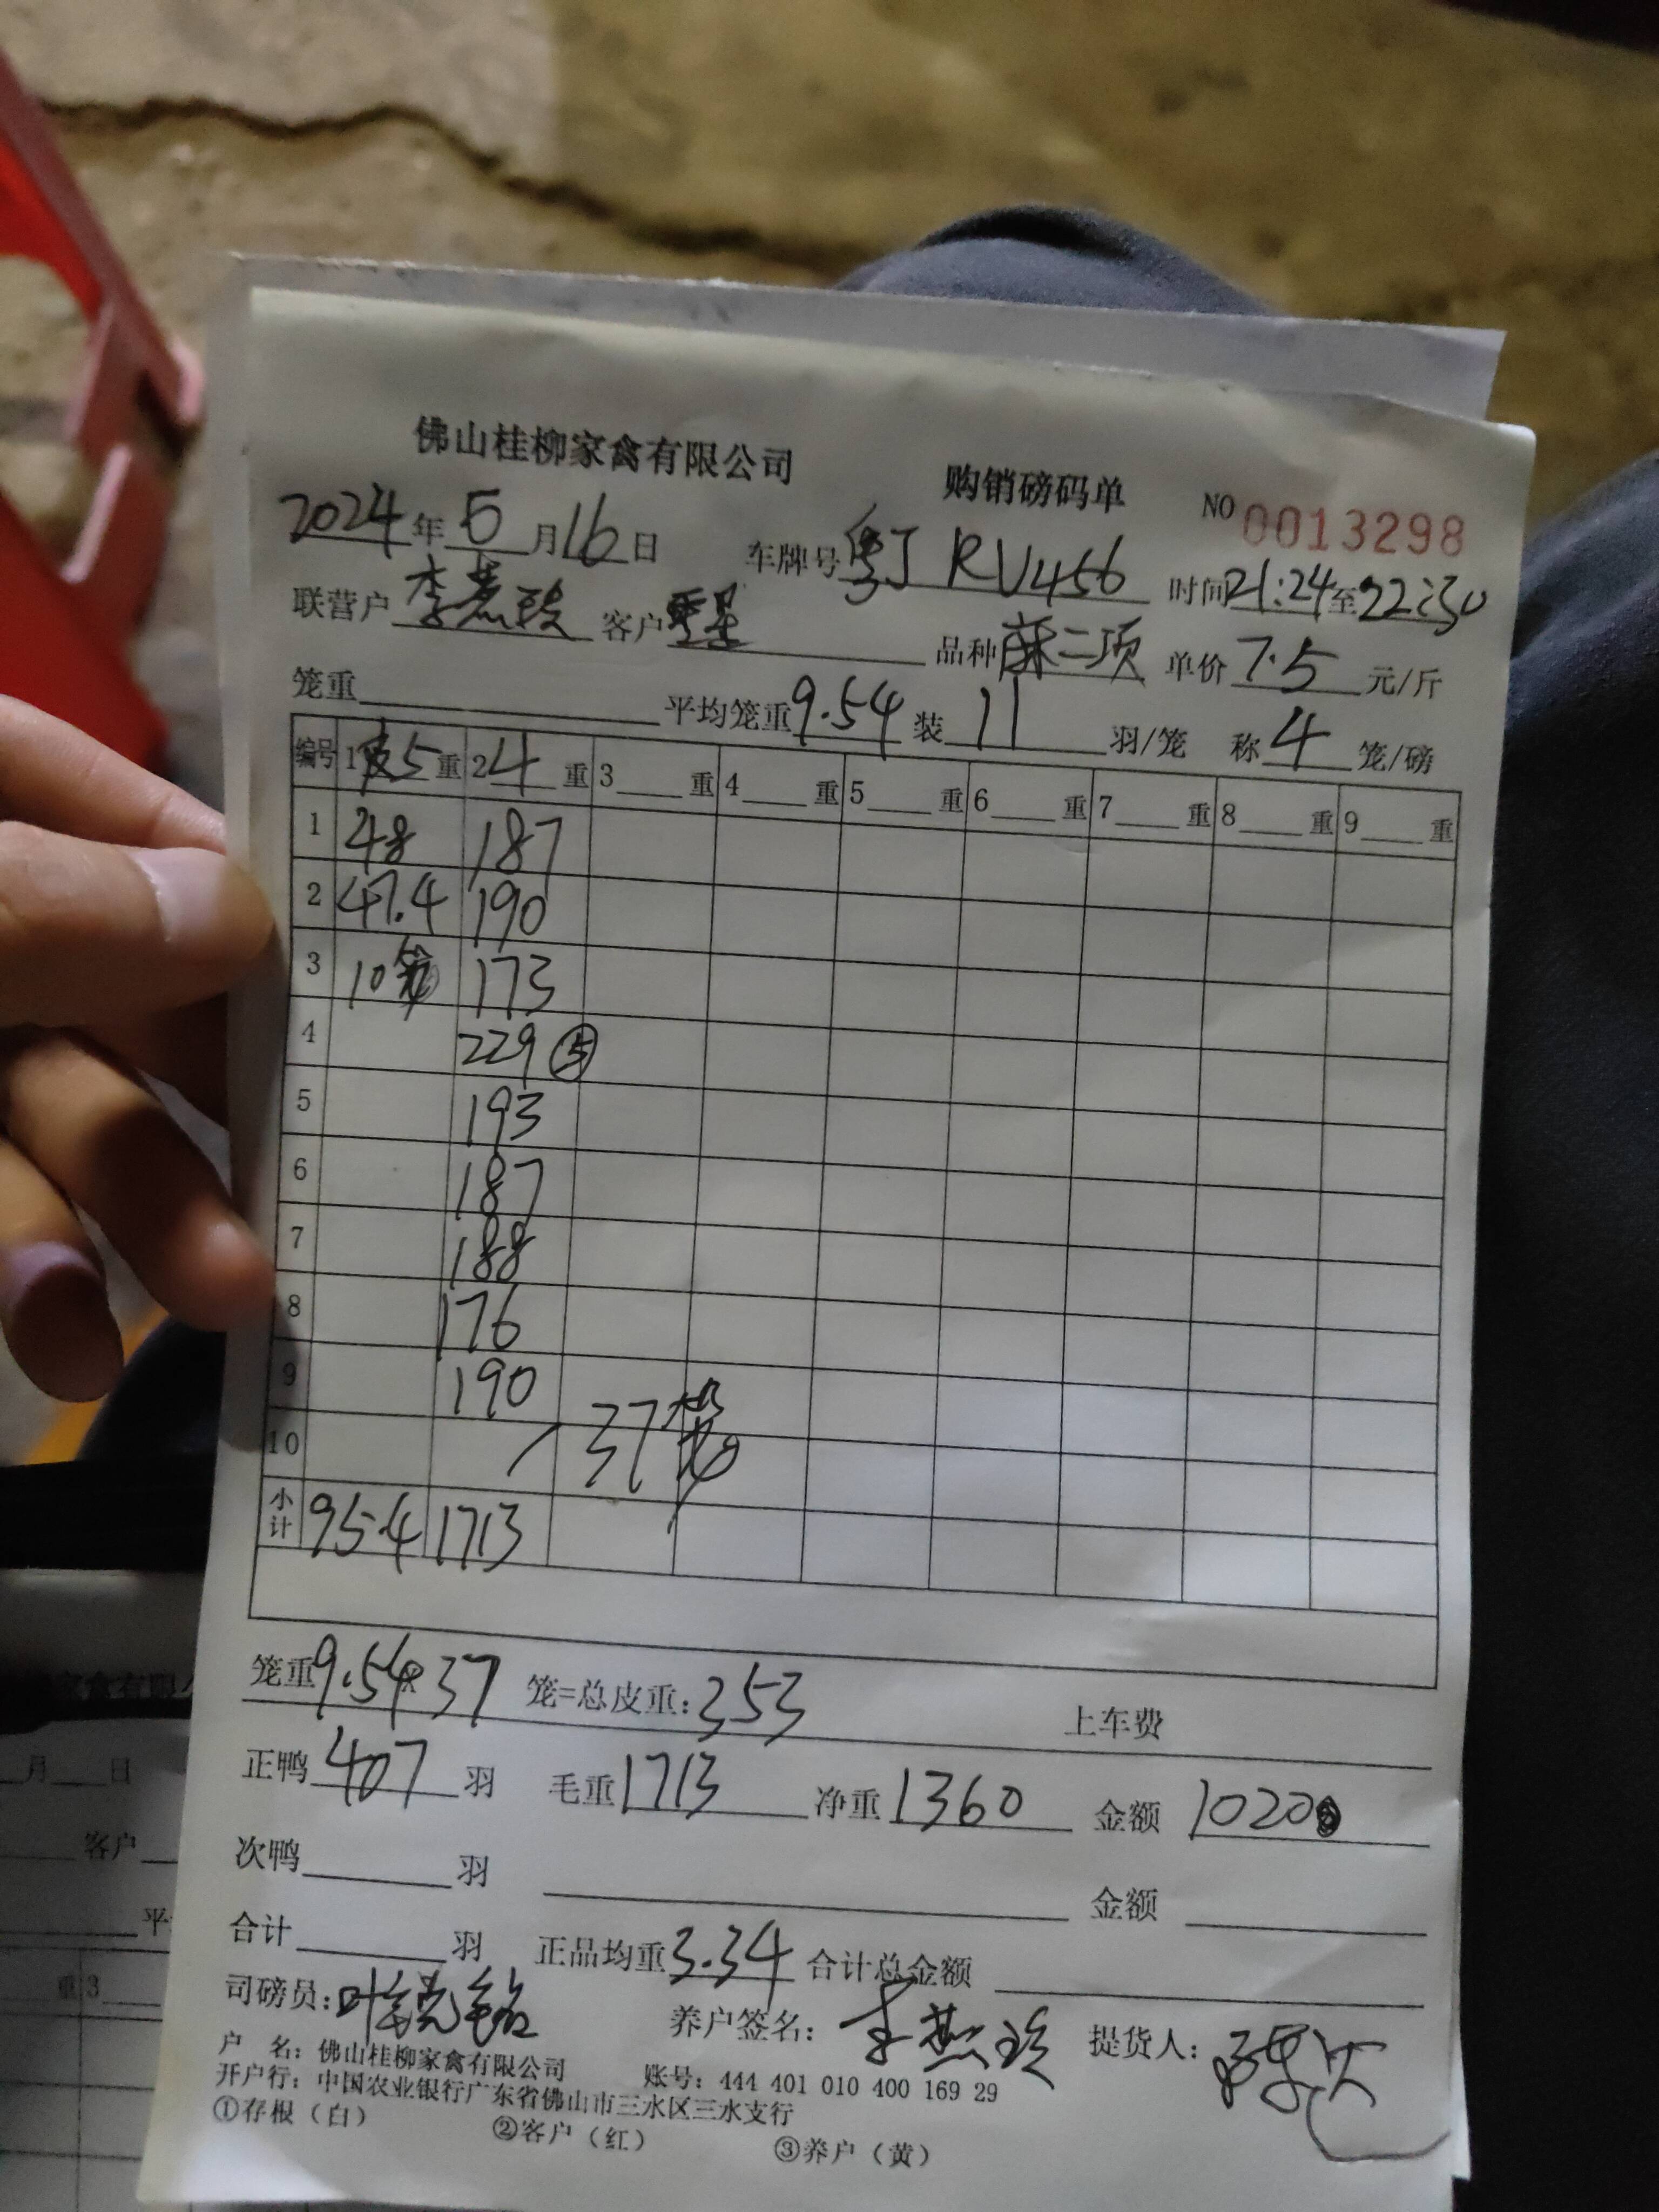 佛山桂柳家禽有限公司 购销磅码单 NO 0013298
2024年5月16日 车牌号粤J RV456 时间21:24至22:30
联营户李燕玲 客户 品种二项 单价7.5元/斤
笼重 平均笼重9.54装11羽/笼 称4笼/磅
编号 1皮5重 2 4重 3重 4重 5重 6重 7重 8重 9重
1 48 187
2 47.4 190
3 10笼 173
4 229 ⑤
5 193
6 187
7 188
8 176
9 190
10 37笼
小计 95.4 1713
笼重9.54×37 笼=总皮重:353 上车费
正鸭407羽 毛重1713 净重1360 金额10200
次鸭羽 金额
合计羽 正品均重3.34 合计总金额
司磅员:叶 养户签名:李燕玲 提货人:陈
户 名:佛山桂柳家禽有限公司 账号:444 401 010 400 169 29
开户行:中国农业银行广东省佛山市三水区三水支行
①存根(白) ②客户(红) ③养户(黄)
家禽有限
月 日
客户
平
重 3